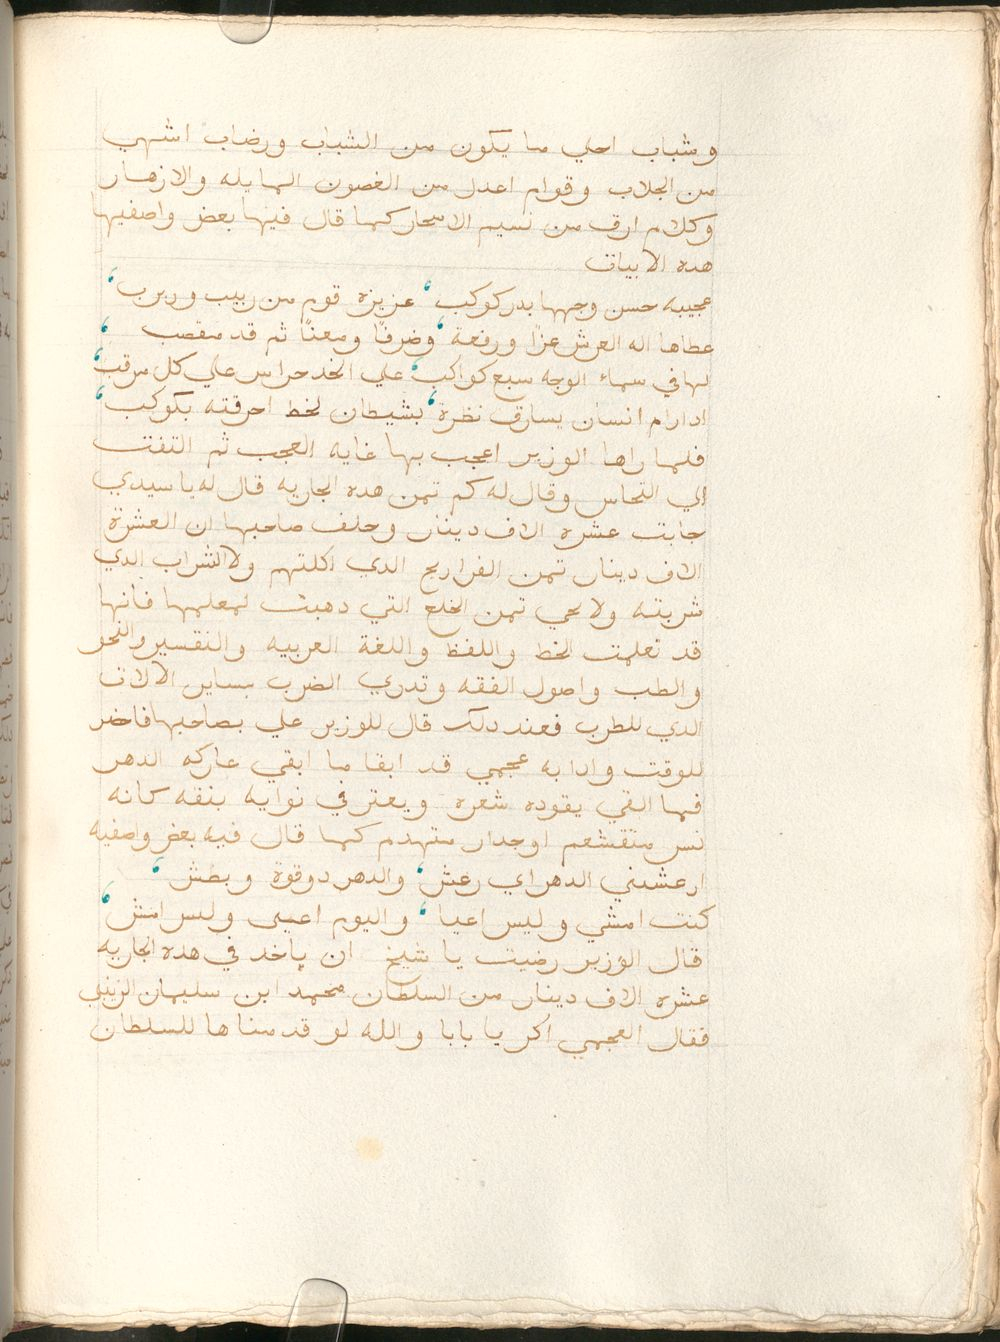 وشباب احلي ما يكون من الشباب ورضاب اشهي
من الجلاب وقوام اعدل من الغصون المايله والازهار
وكلام ارق من نسيم الاسحار كما قال فيها بعض واصفيها
هده الابيات
عجيبه حسن وجهها بدر كوكب ، عزيزة قوم من ربيب وربرب ،
عطاها اله العرش عزًا ورفعة ، وضرفًا ومعنًا ثم قد مقصب ،
لها في سماء الوجه سبع كواكب ، علي الخد حراس علي كل مرقب ،
ادا رام انسان يسارق نظرة ، بشيطان لخط احرقته بكوكب ،
فلما راها الوزير اعجب بها غايه العجب ثم التفت
الي النحاس وقال له كم تمن هده الجاريه قال له يا سيدي
جابت عشرة الاف دينار وحلف صاحبها ان العشرة
الاف دينار تمن الفراريج الدي اكلتهم ولا الشراب الدي
شربته ولا هي تمن الخلع التي دهبت لمعلمها فانها
قد تعلمت الخط واللفظ واللغة العربيه والتفسير والنحو
والطب واصول الفقه وتدري الضرب بساير الالات
الدي للطرب فعند دلك قال للوزير علي بصاحبها فاحضر
للوقت وادا به عجمي قد ابقا ما ابقي عاركه الدهر
فما القي يقوده شعره ويعتر في نوايه بنقه كانه
نسر متقشعم او جدار متهدم كما قال فيه بعض واصفيه
ارعشني الدهر اي رعش ، والدهر دو قوة وبطش ،
كنت امشي وليس اعيا ، واليوم اعيى وليس امش ،
قال الوزير رضيت يا شيخ ان ياخد في هده الجاريه
عشره الاف دينار من السلطان محمد ابن سليمان الزيني
فقال العجمي اكر يا بابا والله لو قدمنا ها للسلطان